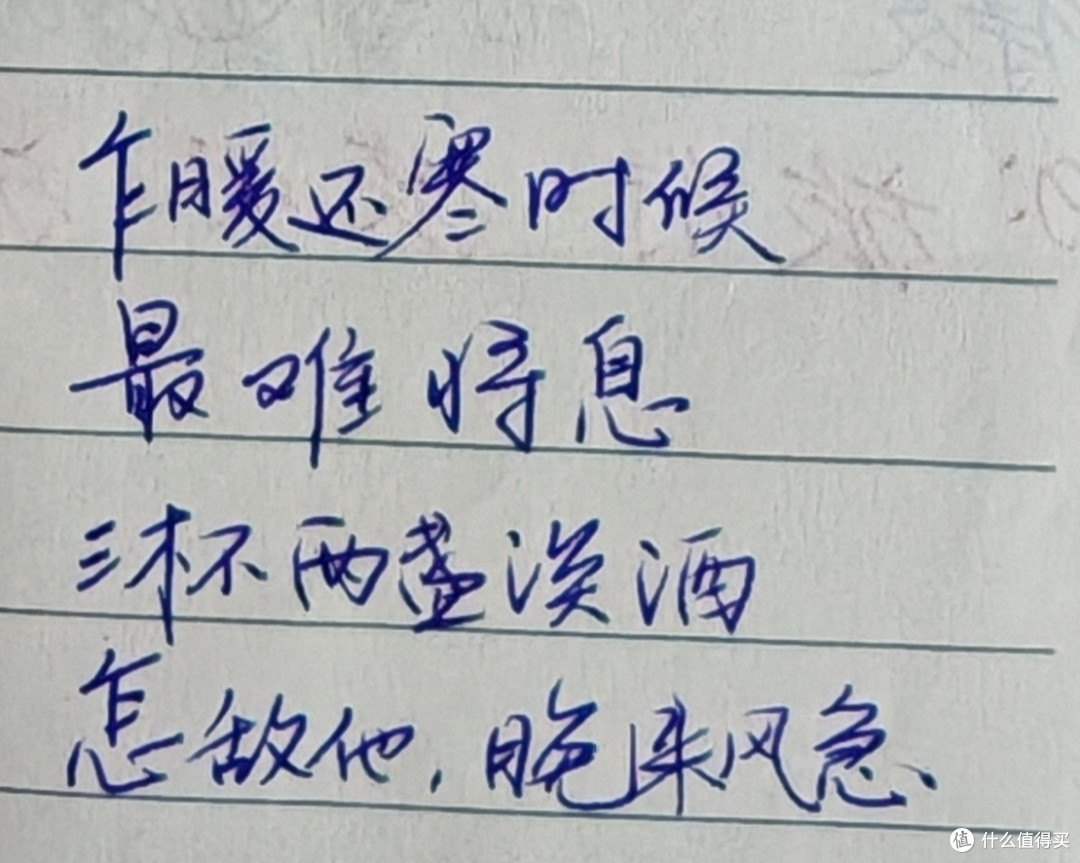 乍暖还寒时候
最难将息
三杯两盏淡酒
怎敌他,晚来风急、
值 什么值得买